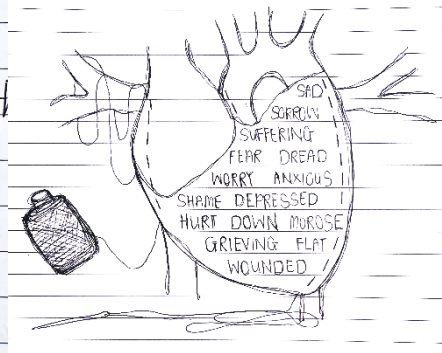 SAD
SORROW
SUFFERING
FEAR DREAD
WORRY ANXIOUS
SHAME DEPRESSED
HURT DOWN MOROSE
GRIEVING FLAT
WOUNDED